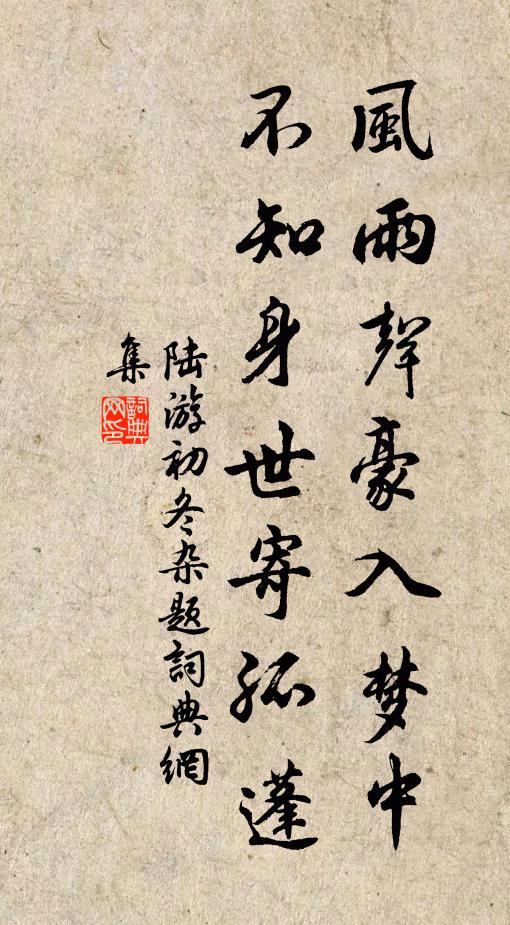 風雨聲豪入梦中
不知身世寄孤蓬
陆游初冬杂题詞典網
集
詞典网印